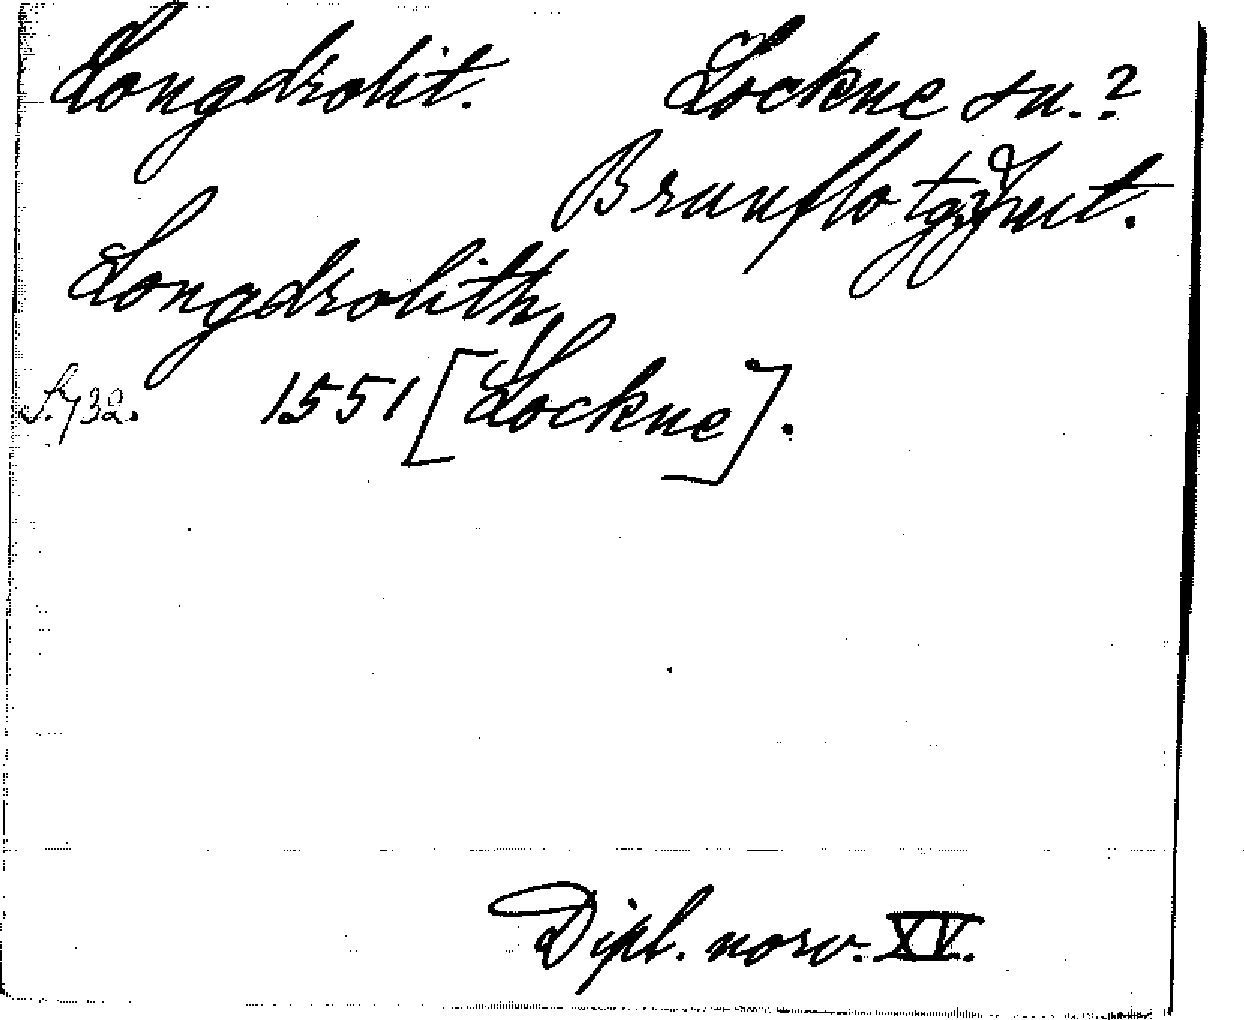 Longdrolit. Lockne sn.?
Brunflo tg. Jmtl.
Longdrolith,
S. 732. 1551 [Lockne].
Dipl. norv. XV.